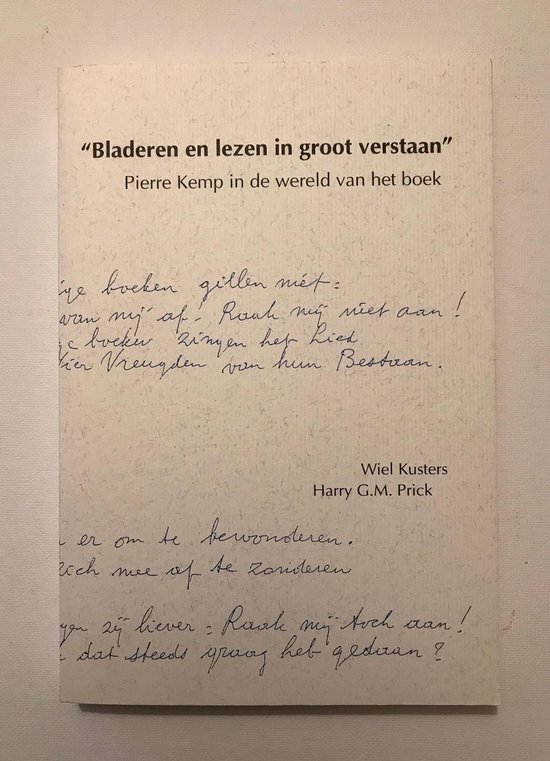 “Bladeren en lezen in groot verstaan”
Pierre Kemp in de wereld van het boek
ige boeken gillen niet:
van mij af - Raak mij niet aan!
ge boeken zingen het Lied
hier Vreugden van hun Bestaan.
Wiel Kusters
Harry G.M. Prick
n er om te bewonderen.
zich mee af te zonderen
gen zij liever: Raak mij toch aan!
dat steeds graag heb gedaan?